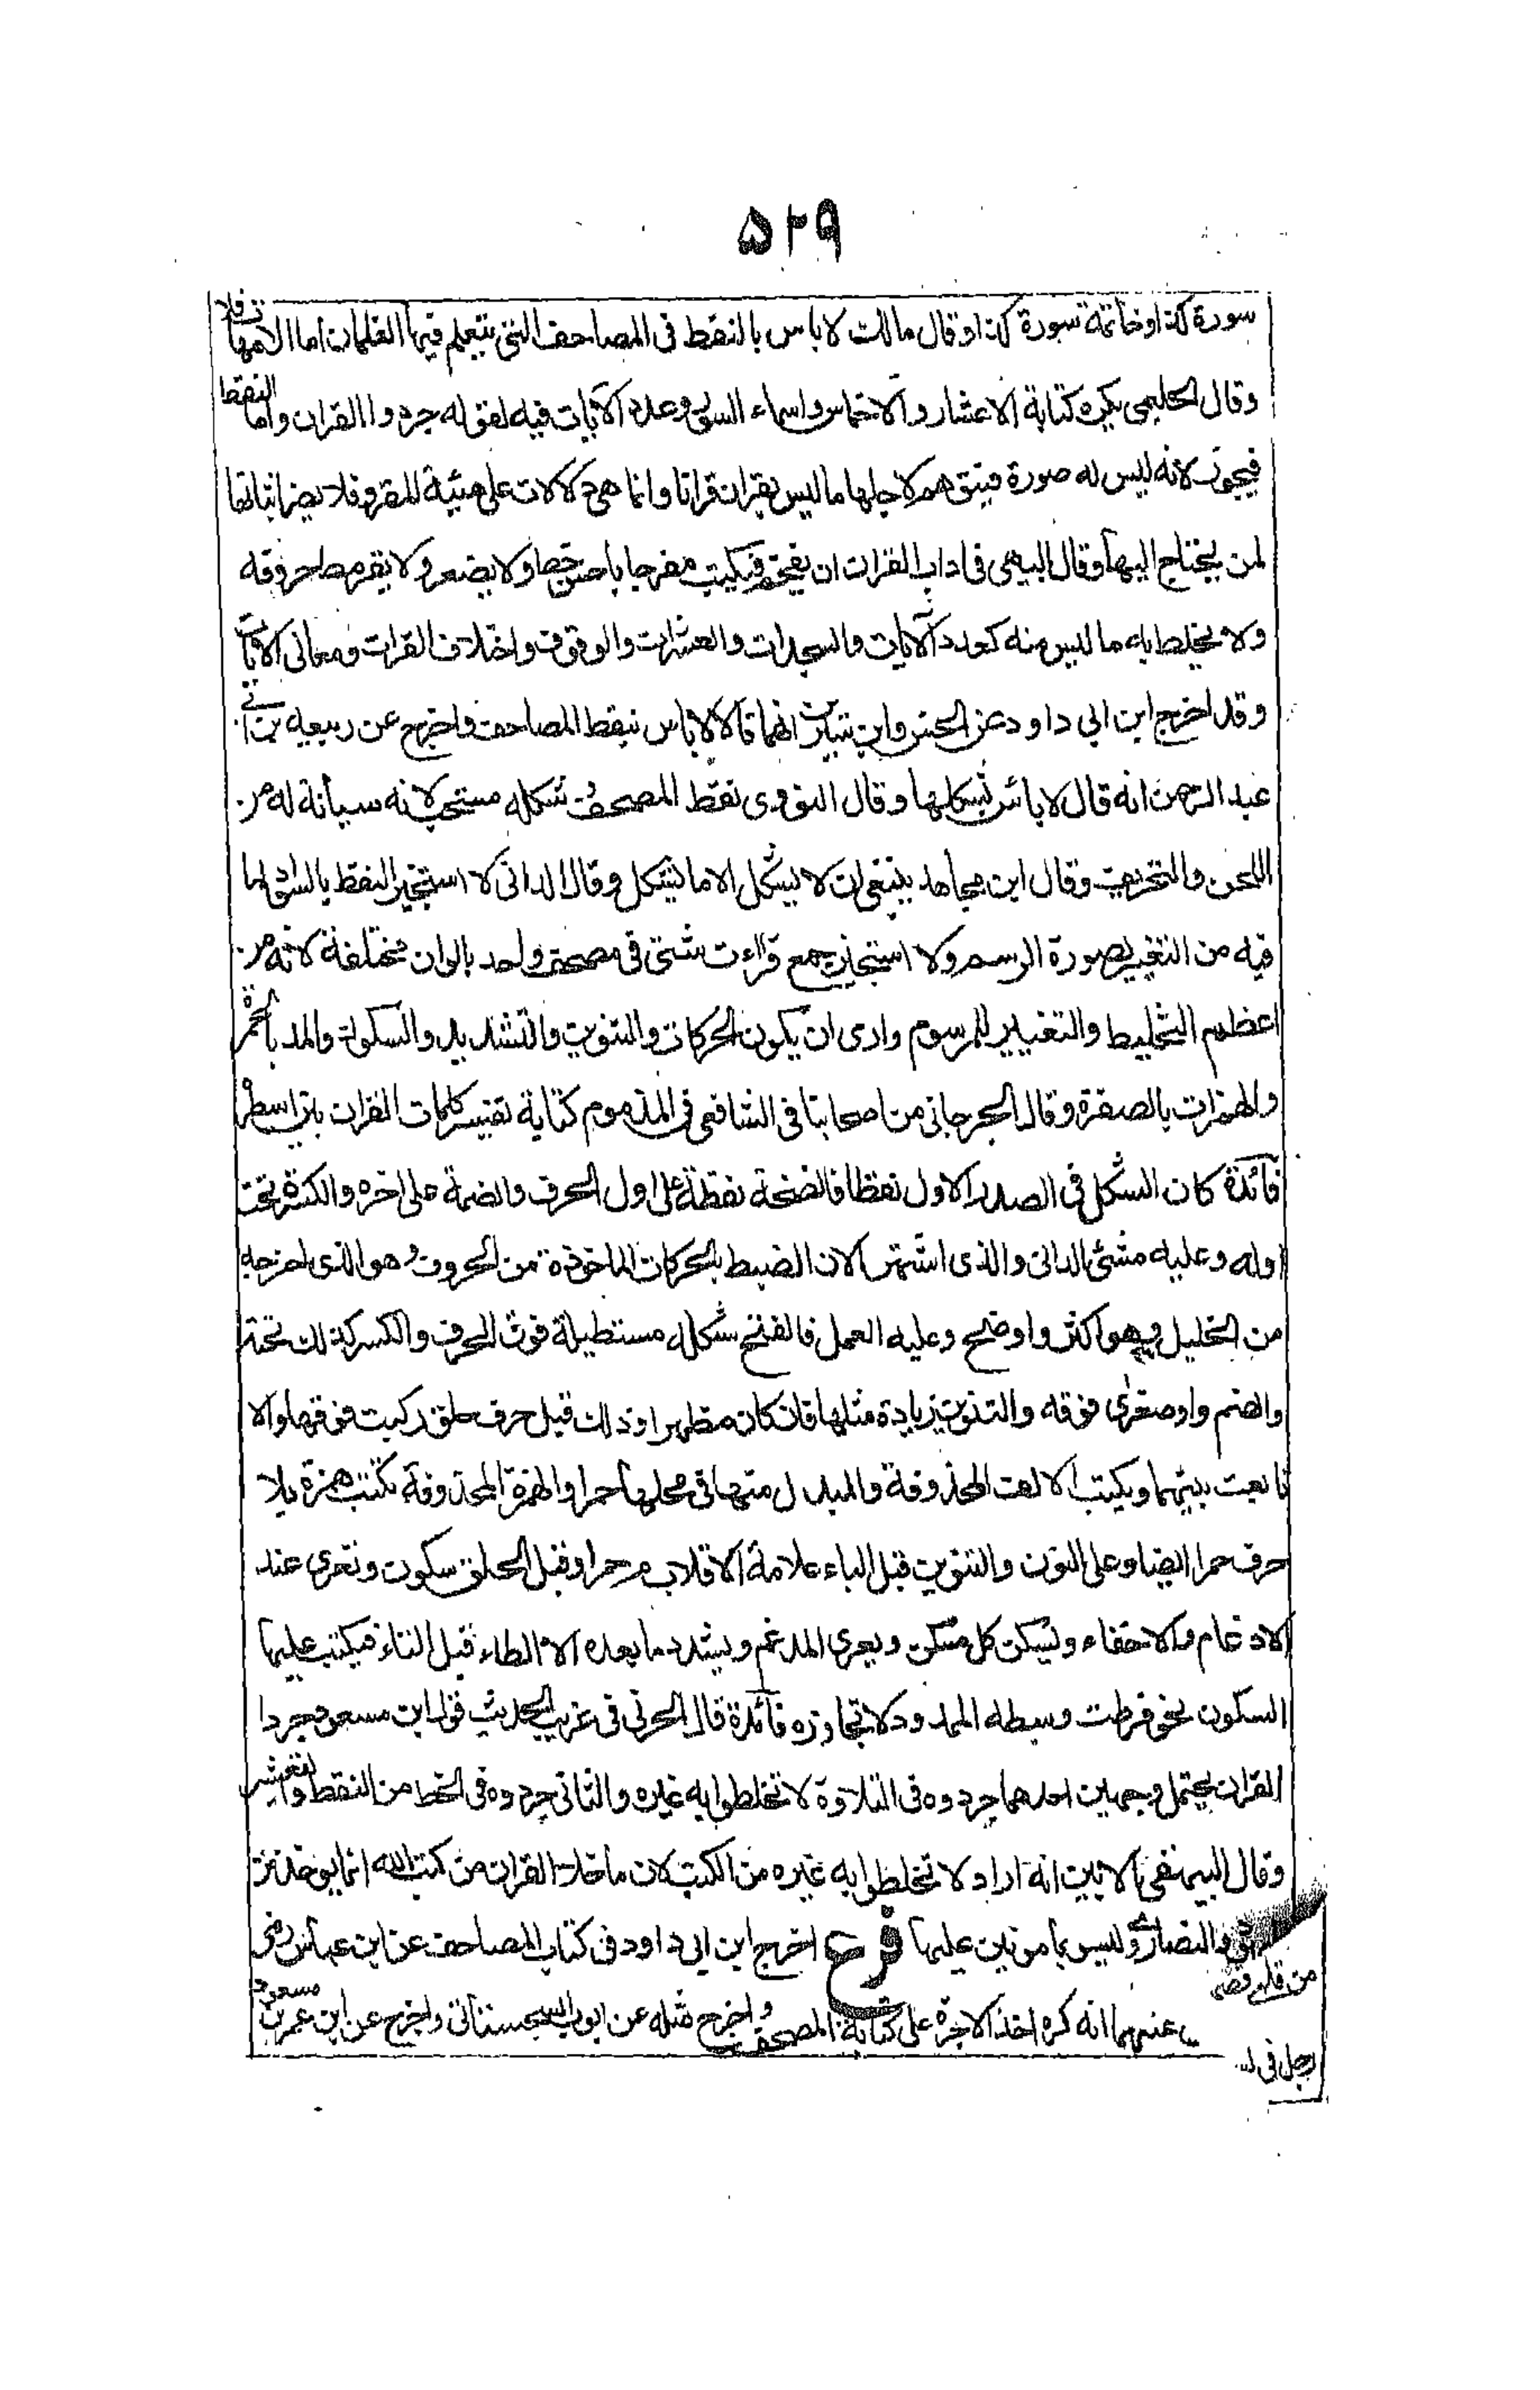 ٥٢٩
سورة كذا وخاتمة سورة كذا وقال مالك لا باس بالنقط فى المصاحف التى يتعلم فيها الغلمان اما الامهات فلا
وقال الحليمى يكره كتابة الاعشار والاخماس واسماء السور وعدد الآيات فيه لقوله جردوا القران واما النقط
فيجوز لانه ليس له صورة فيتوهم لاجلها ما ليس بقران قرانا وانما هى دلالات على هيئة المقرو فلا يضر اثباتها
لمن يحتاج اليها وقال البيهقى فى اداب القران ان يفخم فيكتب مفرجا باحسن خط ولا يصغر ولا يقرمط حروفه
ولا يخلط به ما ليس منه كعدد الآيات والسجدات والعشرات والوقوف واختلاف القرات ومعانى الآيات
وقد اخرج ابن ابى داود عن الحسن وابن سيرين انهما قالا لا باس بنقط المصاحف واخرج عن ربيعه بن ابى
عبد الرحمن انه قال لا باس بشكلها وقال النووى نقط المصحف وشكله مستحب لانه صيانة له من
اللحن والتحريف وقال ابن مجاهد ينبغى ان لا يشكل الا ما يشكل وقال الدانى لا استجيز النقط بالسواد لما
فيه من التغيير لصورة الرسم ولا استجيز جمع قراءت شتى فى مصحف واحد بالوان مختلفة لانه من
اعظم التخليط والتغيير للمرسوم وارى ان يكون الحركات والتنوين والتشديد والسكون والمد بالحمرة
والهمزات بالصفرة وقال الجرجانى من اصحابنا فى الشافى فى المذموم كتابة تفسير كلمات القران بين اسطره
فآئدة كان الشكل فى الصدر الاول نقطا فالفتحة نقطة على اول الحرف والضمة على اخره والكسرة تحت
اوله وعليه مشى الدانى والذى اشتهر الان الضبط بالحركات الماخوذة من الحروف وهو الذى اخرجه
من الخليل وهو اكثر واوضح وعليه العمل فالفتح شكله مستطيلة فوق الحرف والكسر كذلك تحته
والضم واو صغرى فوقه والتنوين زيادة مثلها فان كان مظهرا وذلك قبل حرف حلق ركبت فوقها والا
تابعت بينهما ويكتب الالف المحذوفة والمبدل منها فى محلها حمرا والهمزة المحذوفة تكتب همزة بلا
حرف حمرا ايضا وعلى النون والتنوين قبل الباء علامة الاقلاب م حمرا وقبل الحلق سكون وتعرى عند
الادغام والاخفاء ويسكن كل مسكن ويعرى المدغم ويشدد ما بعده الا الطاء قبل التاء فيكتب عليها
السكون نحو فرطت وسطه الممدود لا تجاوزه فآئدة قال الحربى فى غريب الحديث قول ابن مسعود جردا
القران يحتمل وجهين احدهما جردوه فى التلاوة لا تخلطوا به غيره والثانى جردوه فى الخط من النقط والتعشير
وقال البيهقى الابين انه اراد لا تخلطوا به غيره من الكتب لان ما خلا القران من كتب الله انما يوخذ عن
والنصارى وليس بمامونين عليها فرع اخرج ابن ابى داود فى كتاب المصاحف عن ابن عباس رضى
عنهما انه كره اخذ الاجرة على كتابة المصحف واخرج مثله عن ايوب السجستانى واخرج عن ابن عمر وابن مسعود
رجل فى